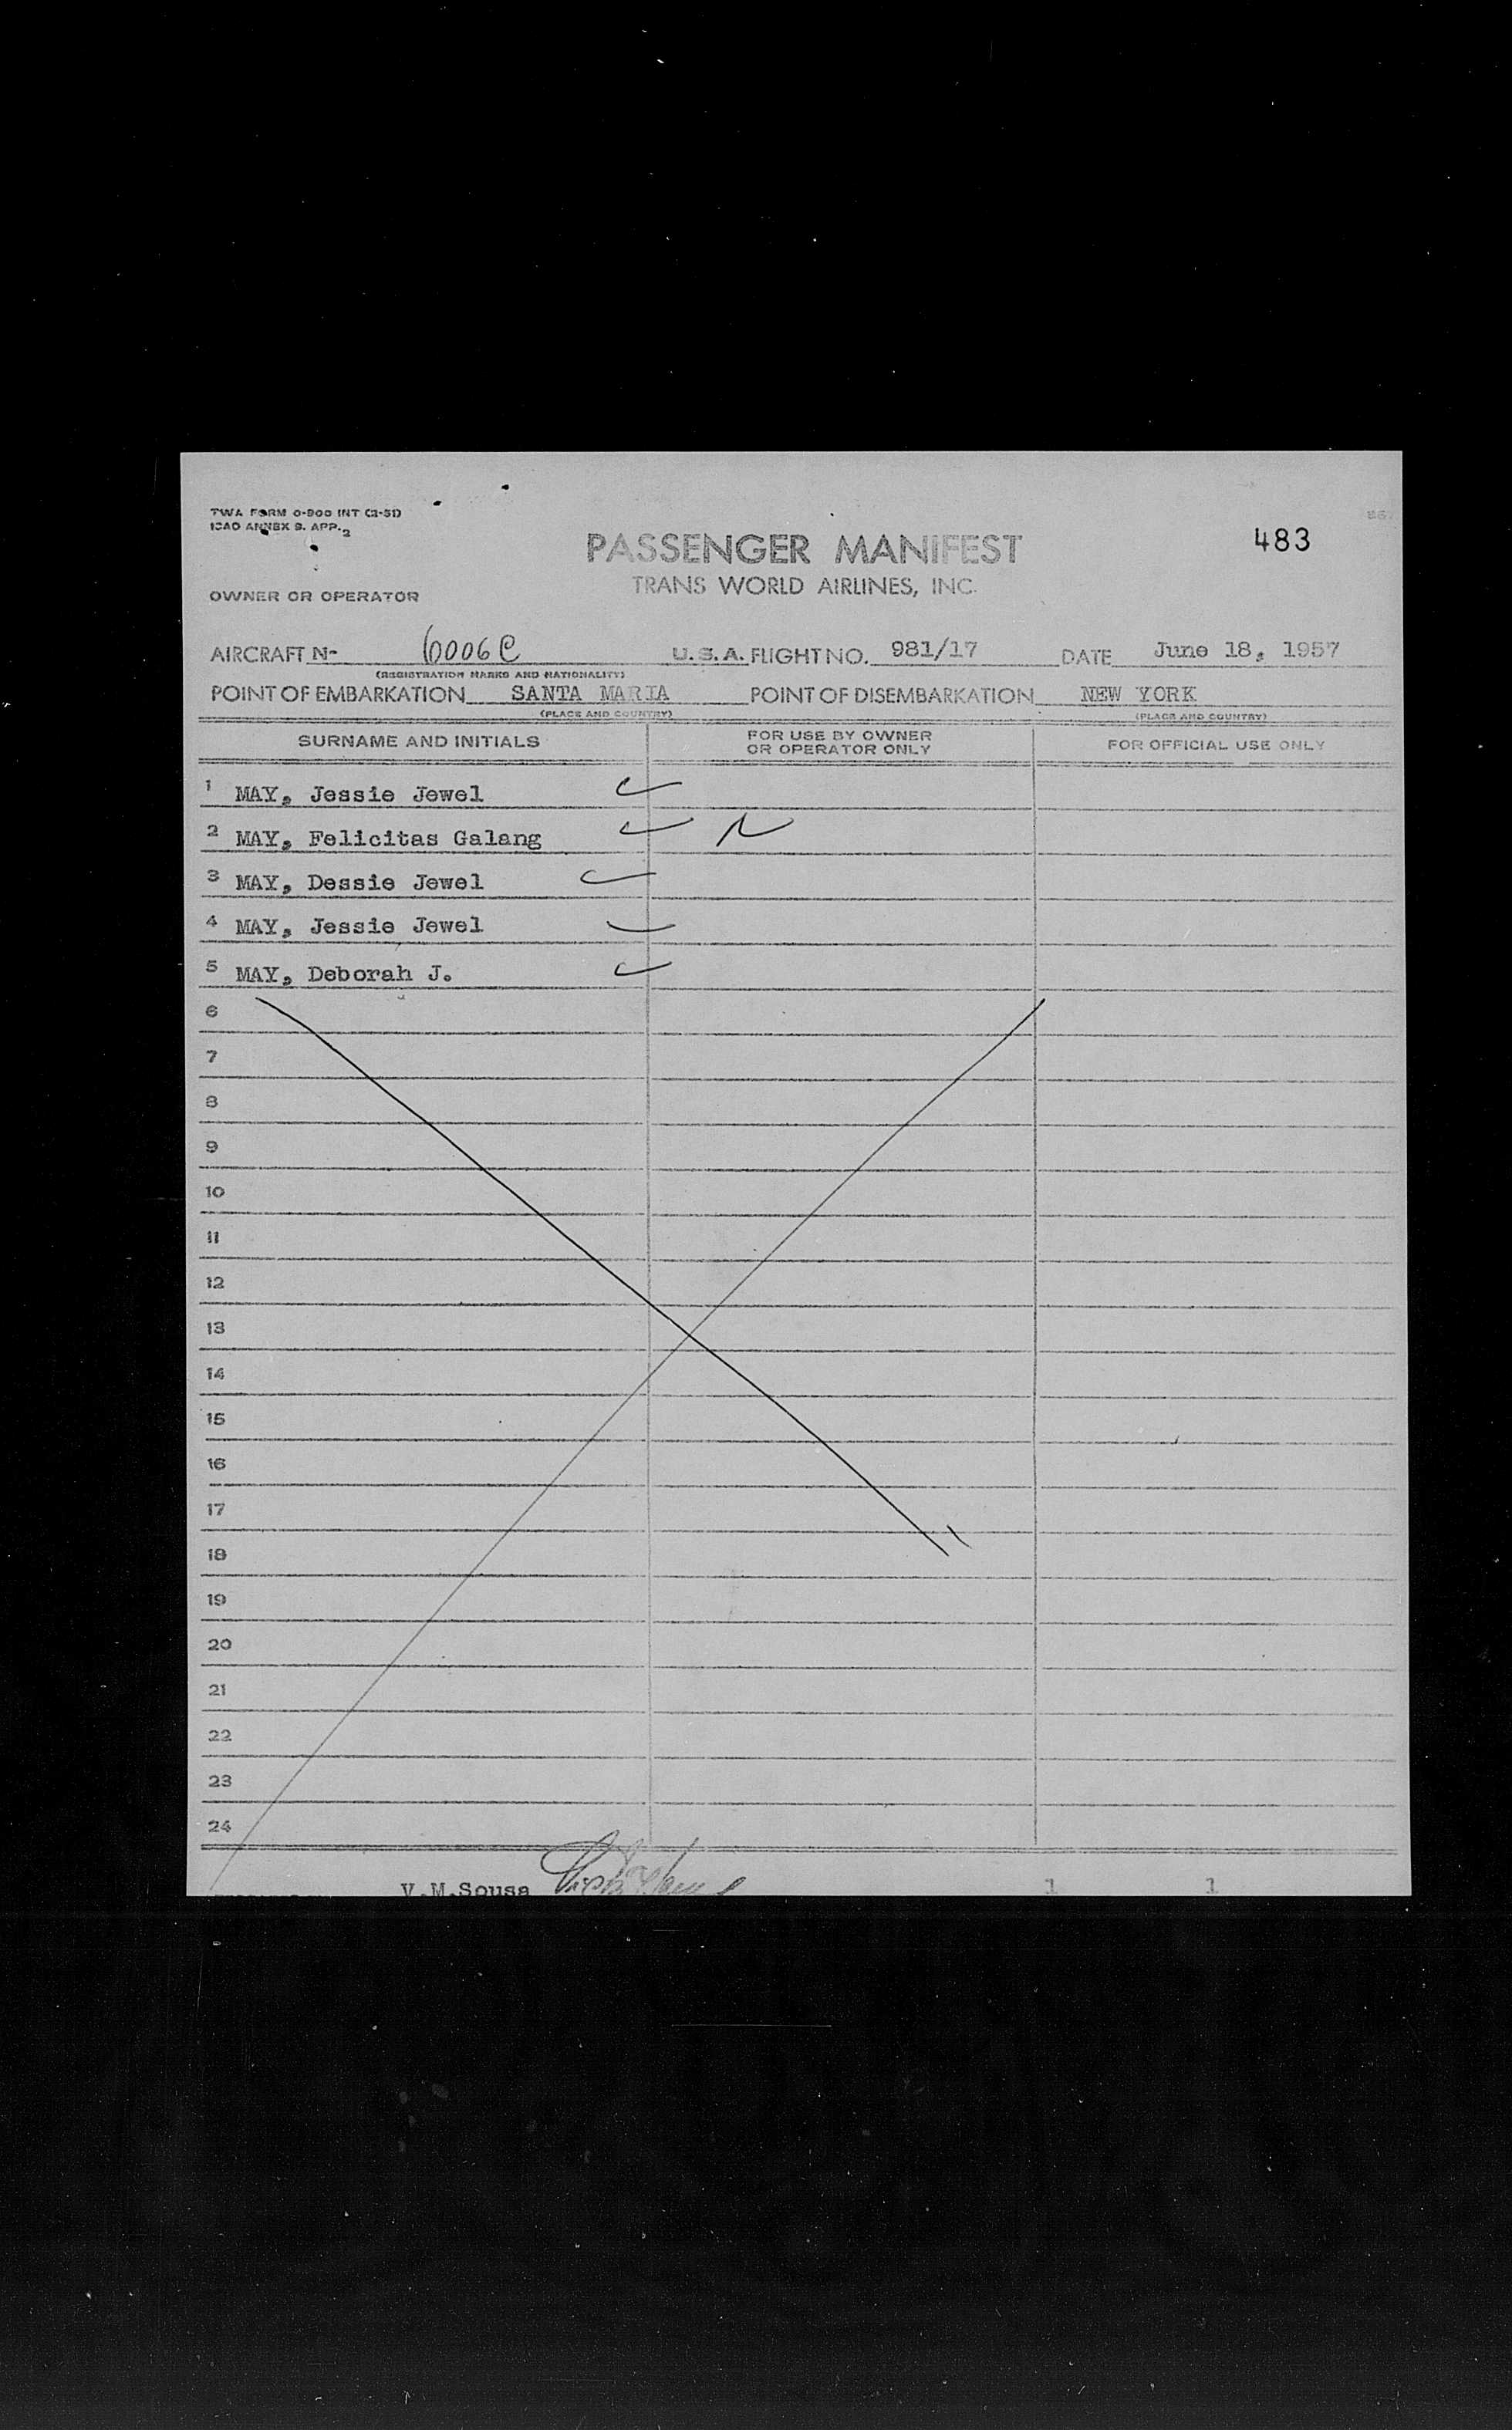 TWA FORM O-900 INT (2-51)
ICAO ANNEX 9. APP. 2
483
PASSENGER MANIFEST
TRANS WORLD AIRLINES, INC.
OWNER OR OPERATOR
AIRCRAFT N- 6006C U.S.A. FLIGHT NO. 981/17 DATE June 18, 1957
(REGISTRATION MARKS AND NATIONALITY)
POINT OF EMBARKATION SANTA MARIA POINT OF DISEMBARKATION NEW YORK
(PLACE AND COUNTRY) (PLACE AND COUNTRY)
SURNAME AND INITIALS FOR USE BY OWNER OR OPERATOR ONLY FOR OFFICIAL USE ONLY
1 MAY, Jessie Jewel
2 MAY, Felicitas Galang
3 MAY, Dessie Jewel
4 MAY, Jessie Jewel
5 MAY, Deborah J.
6
7
8
9
10
11
12
13
14
15
16
17
18
19
20
21
22
23
24
V.M.Sousa 1 1